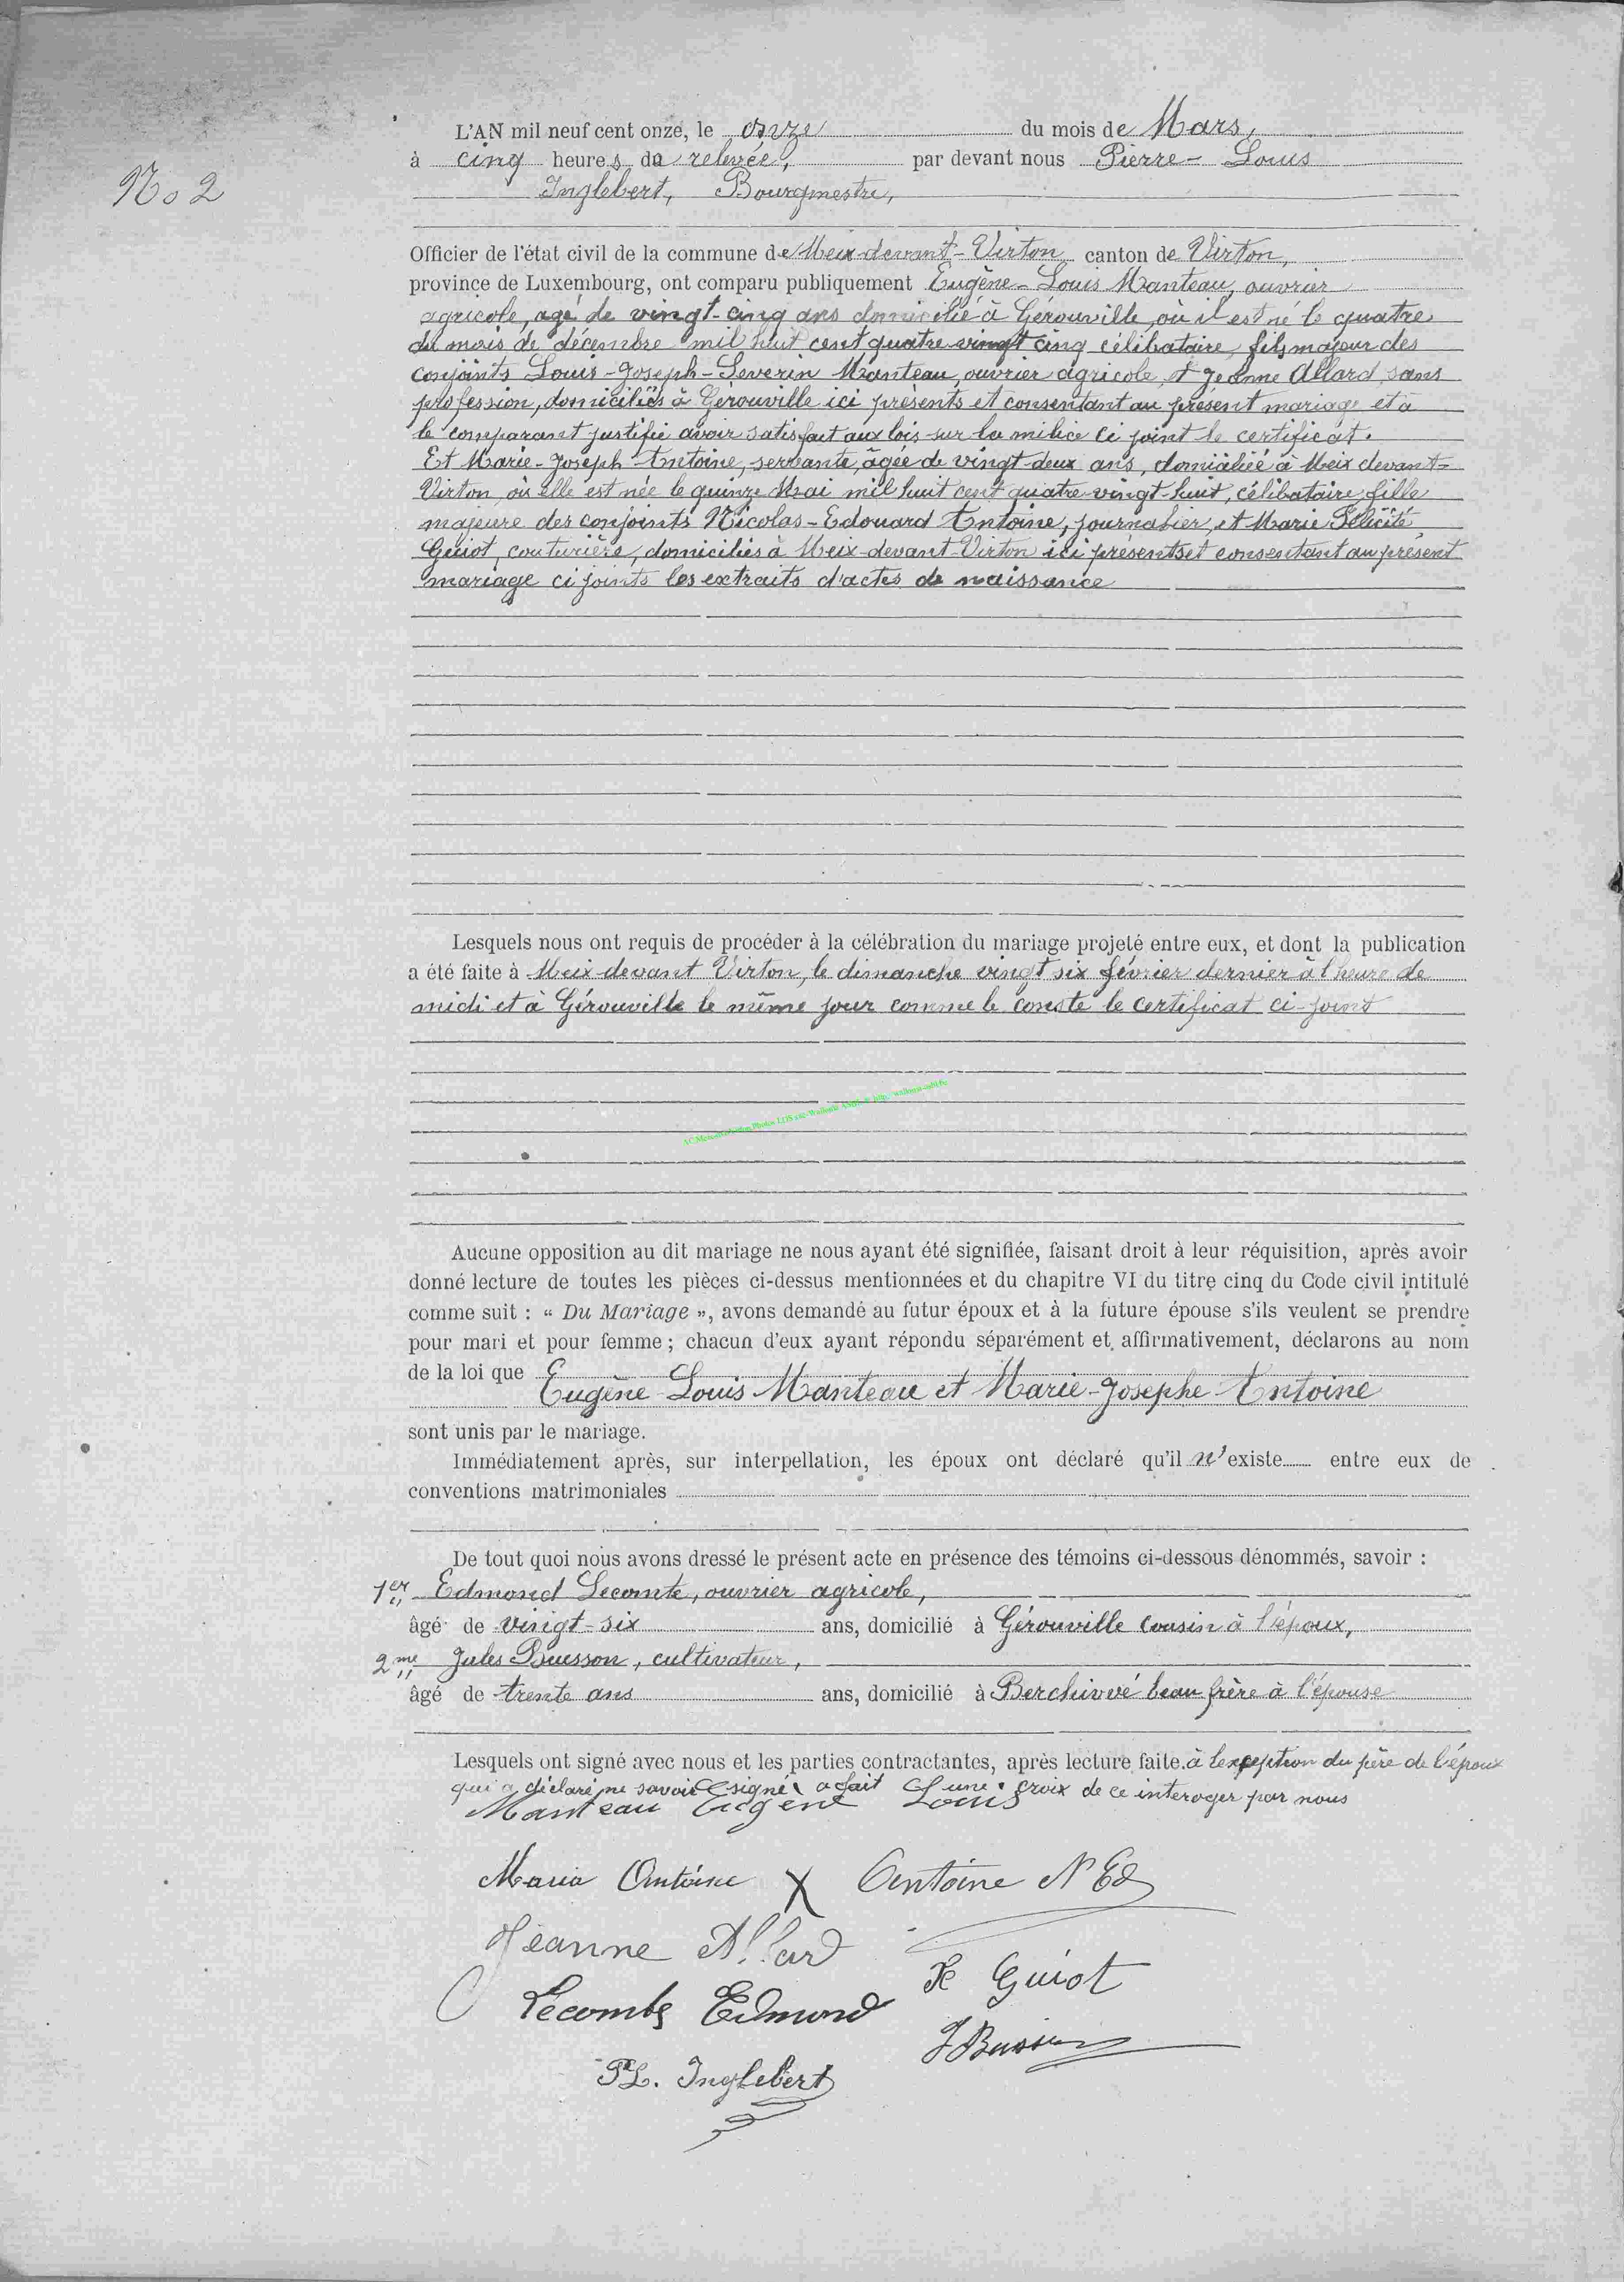 No 2
L'AN mil neuf cent onze, le onze du mois de Mars,
à cinq heures de relevée, par devant nous Pierre-Louis
Inglebert, Bourgmestre,
Officier de l'état civil de la commune de Meix-devant-Virton canton de Virton,
province de Luxembourg, ont comparu publiquement Eugène-Louis Manteau, ouvrier
agricole, agé de vingt-cinq ans domicilié à Gérouville, où il est né le quatre
du mois de décembre mil huit cent quatre vingt cinq célibataire, fils majeur des
conjoints Louis-Joseph-Severin Manteau, ouvrier agricole, et Jeanne Allard, sans
profession, domiciliés à Gérouville ici présents et consentant au présent mariage et à
le comparant justifié avoir satisfait aux lois sur la milice ci joint le certificat.
Et Marie-Joseph Antoine, servante, âgée de vingt-deux ans, domiciliée à Meix devant-
Virton, où elle est née le quinze Mai mil huit cent quatre-vingt-huit, célibataire, fille
majeure des conjoints Nicolas-Edouard Antoine, journalier, et Marie Félicité
Guiot, couturière, domiciliés à Meix-devant-Virton ici présents et consentant au présent
mariage ci joints les extraits d'actes de naissance
Lesquels nous ont requis de procéder à la célébration du mariage projeté entre eux, et dont la publication
a été faite à Meix-devant Virton, le dimanche vingt six février dernier à l'heure de
midi et à Gérouville le même jour comme le conste le certificat ci-joint
Aucune opposition au dit mariage ne nous ayant été signifiée, faisant droit à leur réquisition, après avoir
donné lecture de toutes les pièces ci-dessus mentionnées et du chapitre VI du titre cinq du Code civil intitulé
comme suit : « Du Mariage », avons demandé au futur époux et à la future épouse s'ils veulent se prendre
pour mari et pour femme ; chacun d'eux ayant répondu séparément et affirmativement, déclarons au nom
de la loi que
Eugène Louis Manteau et Marie-Josephe Antoine
sont unis par le mariage.
Immédiatement après, sur interpellation, les époux ont déclaré qu'il n'existe entre eux de
conventions matrimoniales
De tout quoi nous avons dressé le présent acte en présence des témoins ci-dessous dénommés, savoir :
1er Edmond Lecomte, ouvrier agricole,
âgé de vingt-six ans, domicilié à Gérouville cousin à l'époux,
2me Jules Buisson, cultivateur,
âgé de trente ans ans, domicilié à Berchivvé beau frère à l'épouse
Lesquels ont signé avec nous et les parties contractantes, après lecture faite. à l'exception du père de l'époux
qui a déclaré ne savoir signé, a fait une croix de ce interoger par nous
Manteau Eugène Louis
Maria Antoine X Antoine N Ed
Jeanne Allard
Fe Guiot
Lecomte Edmond
J Buisson
PL. Inglebert